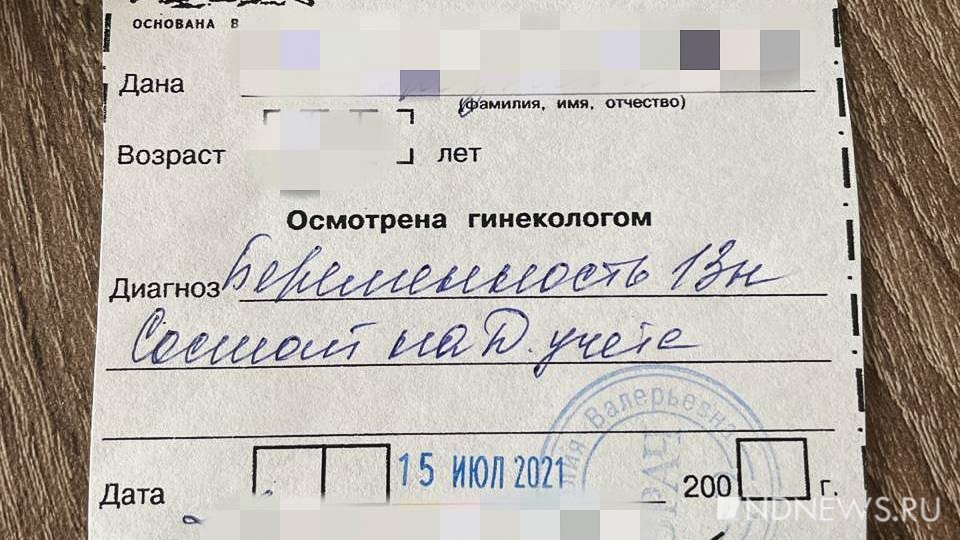 ОСНОВАНА В
Дана
(фамилия, имя, отчество)
Возраст лет
Осмотрена гинекологом
Диагноз Беременность 13н
Состоит на Д. учете
Валерьевна
Дата 15 ИЮЛ 2021 200 г.
NDNEWS.RU